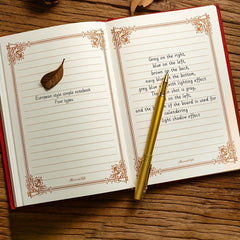 European style simple notebook
Four types
Grey on the right,
blue on the left,
brown on the back,
navy blue in the bottom,
grey blue with lighting effect
The shot is grey,
on the left,
and the of the board is used for
calendering
light shadow effect